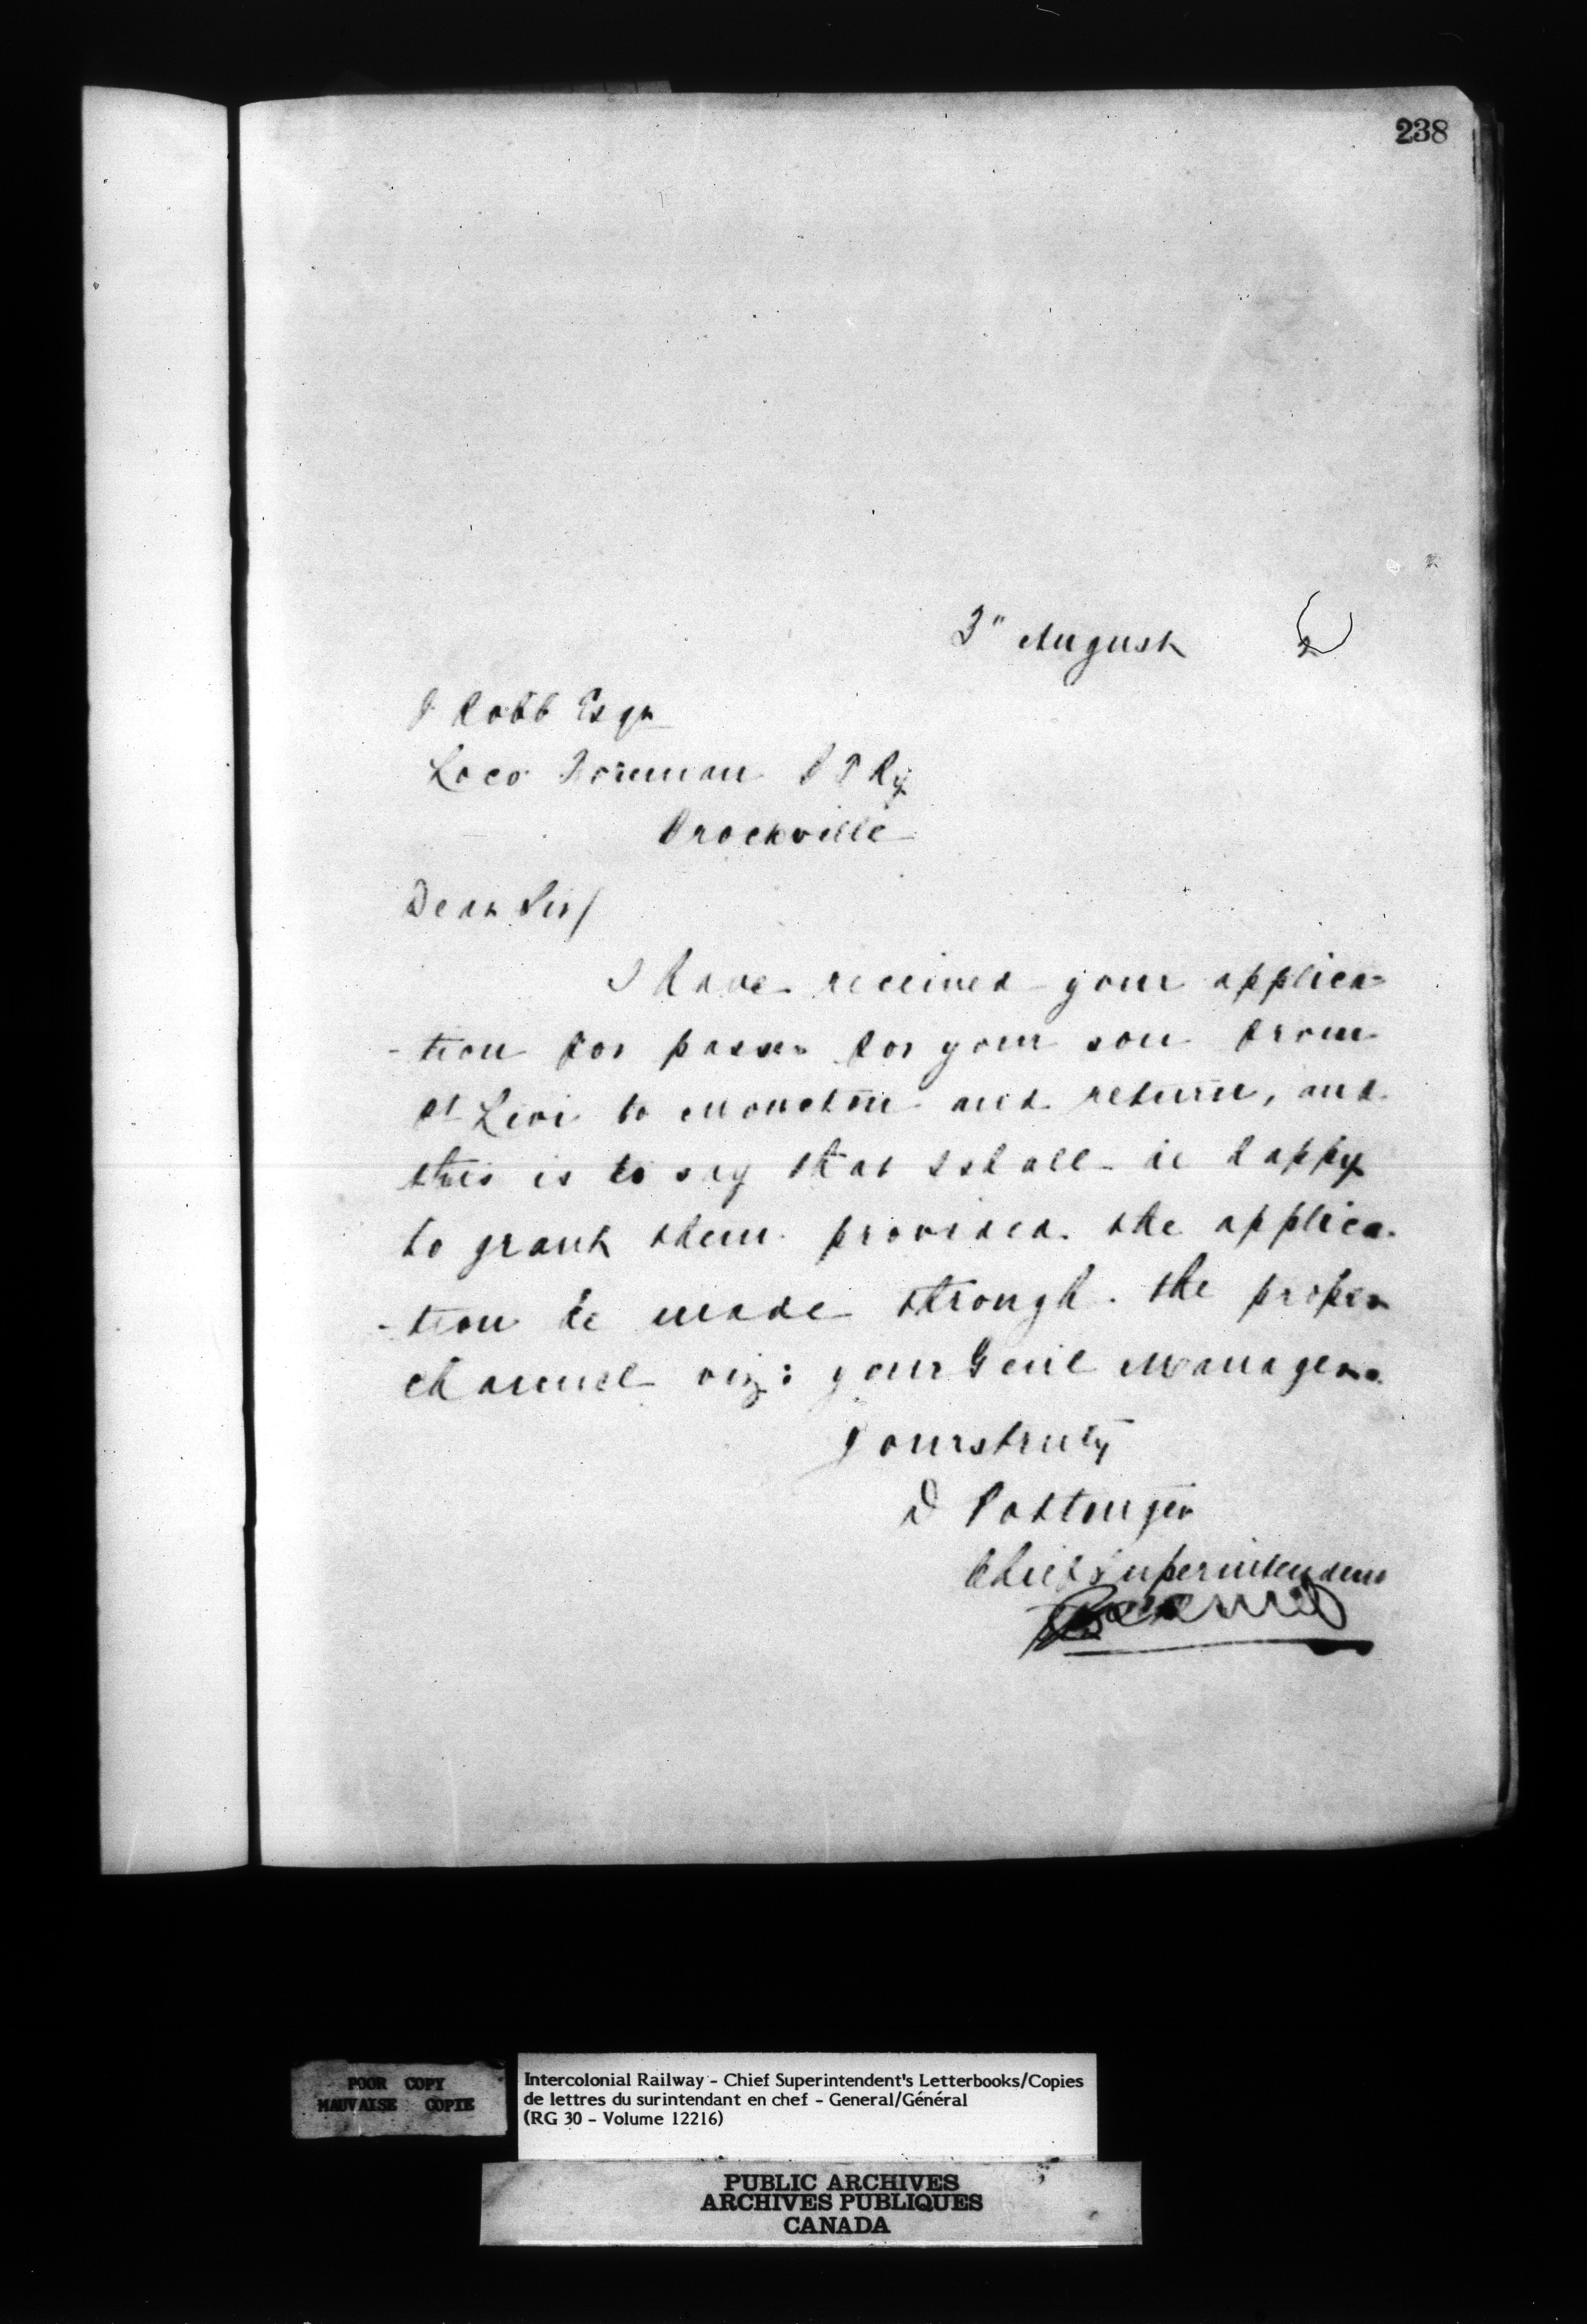 238
3" August
J Robb Esqr
Loco Foreman G T Ry
Brockville
Dear Sir/
I have received your applica-
-tion for passes for your son from
Pt Levi to Moncton and return, and
this is to say that I shall be happy
to grant them provided the applica-
-tion be made through the proper
channel viz: your Genl Manager.
Yours truly
D Pottinger
Chief Superintendent
POOR COPY
MAUVAISE COPIE
Intercolonial Railway - Chief Superintendent's Letterbooks/Copies
de lettres du surintendant en chef - General/Général
(RG 30 - Volume 12216)
PUBLIC ARCHIVES
ARCHIVES PUBLIQUES
CANADA